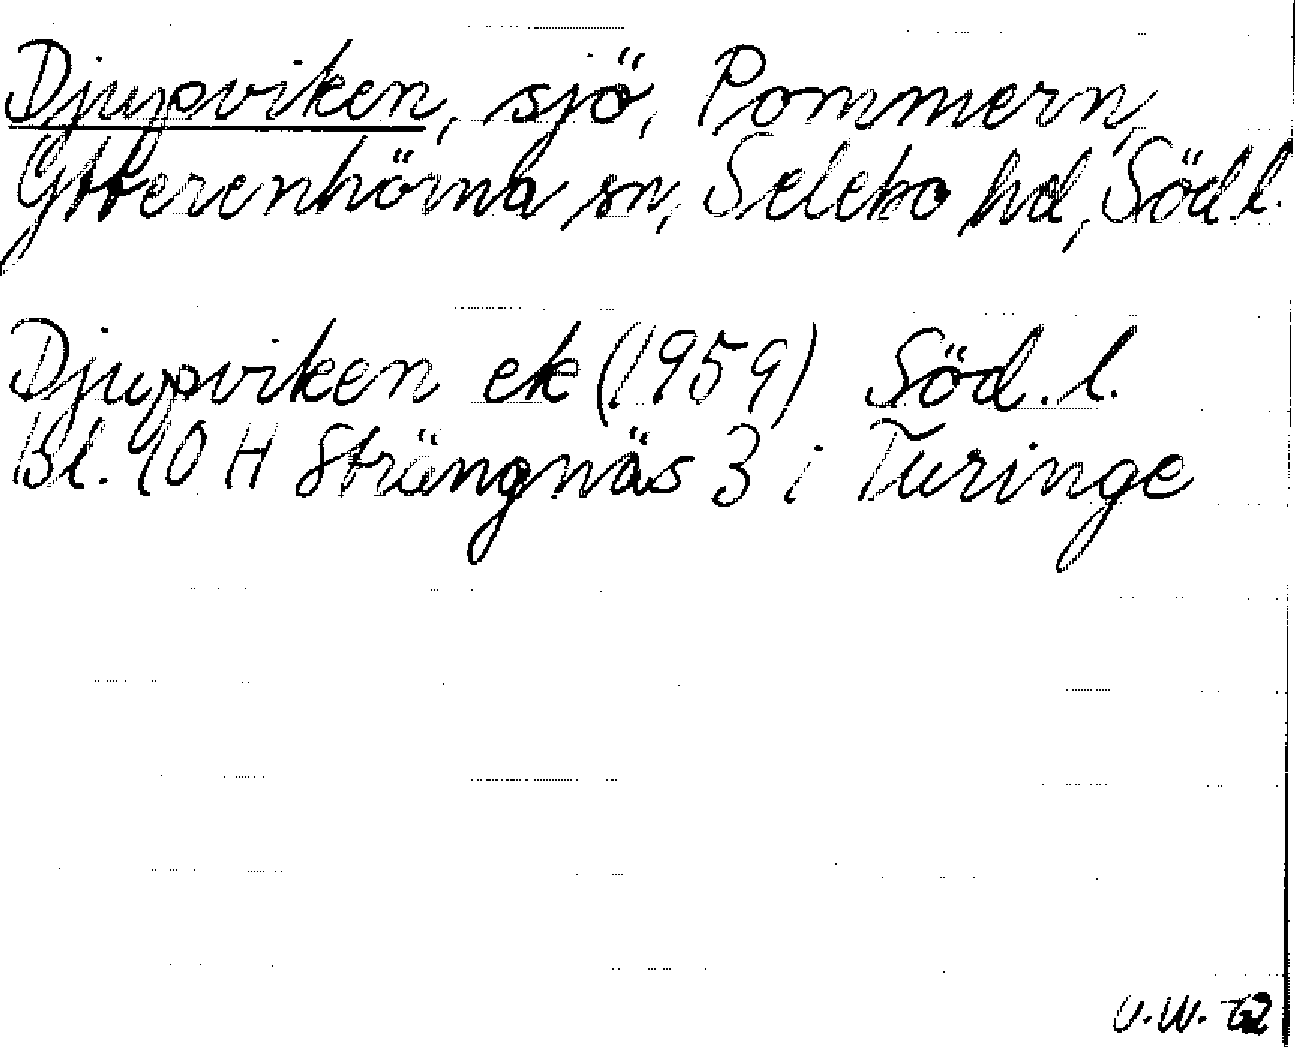 Djupviken, sjö, Pommern,
Ytterenhörna sn, Selebo hd, Söd l.
Djupviken ek (1959) Söd. l.
Bl. 10 H Strängnäs 3 i Turinge
U.W. 62